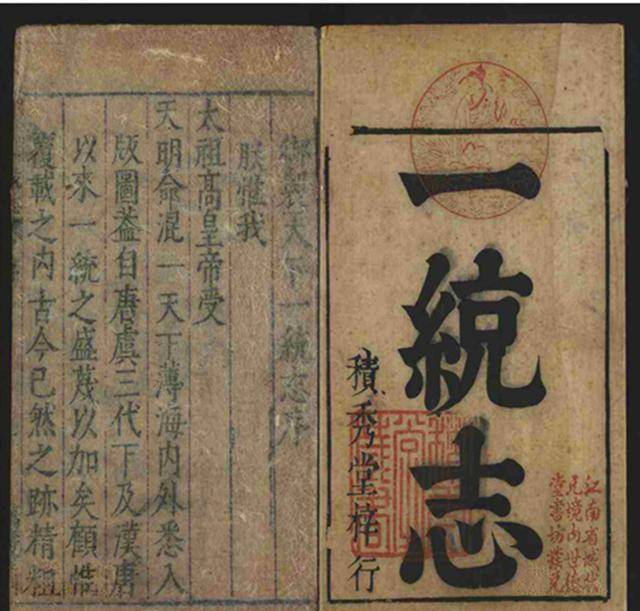 一統志
積秀堂梓行
江南省城狀
元境內世德
堂書坊發兌
御製天下一統志序
朕惟我
太祖高皇帝受
天明命混一天下薄海內外悉入
版圖葢自唐虞三代下及漢唐
以來一統之盛蔑以加矣顧惟
覆載之內古今已然之跡精粗